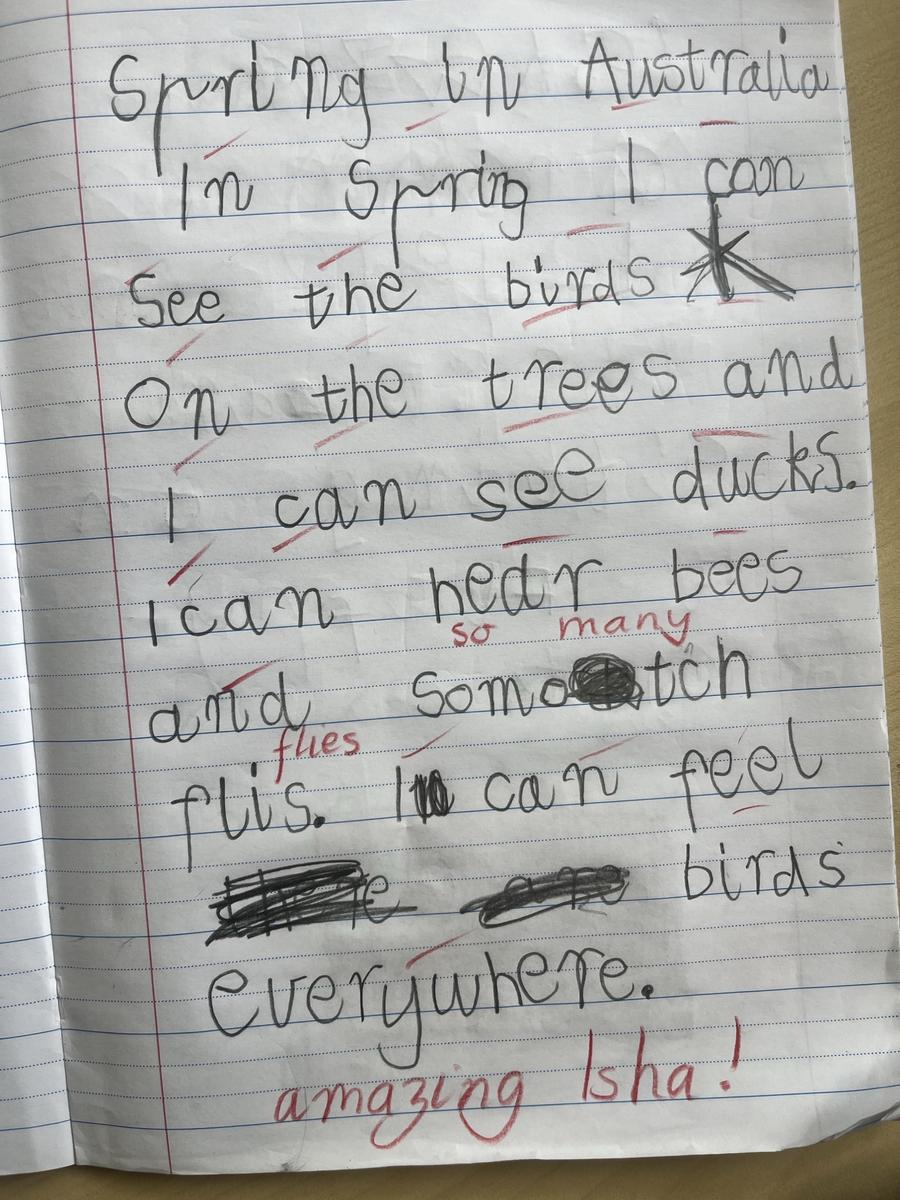 Spring in Australia
In Spring I can
See the birds
On the trees and
I can see ducks.
I can hear bees
so many
and somotch
flies
flis. I can feel
birds
everywhere.
amazing Isha!